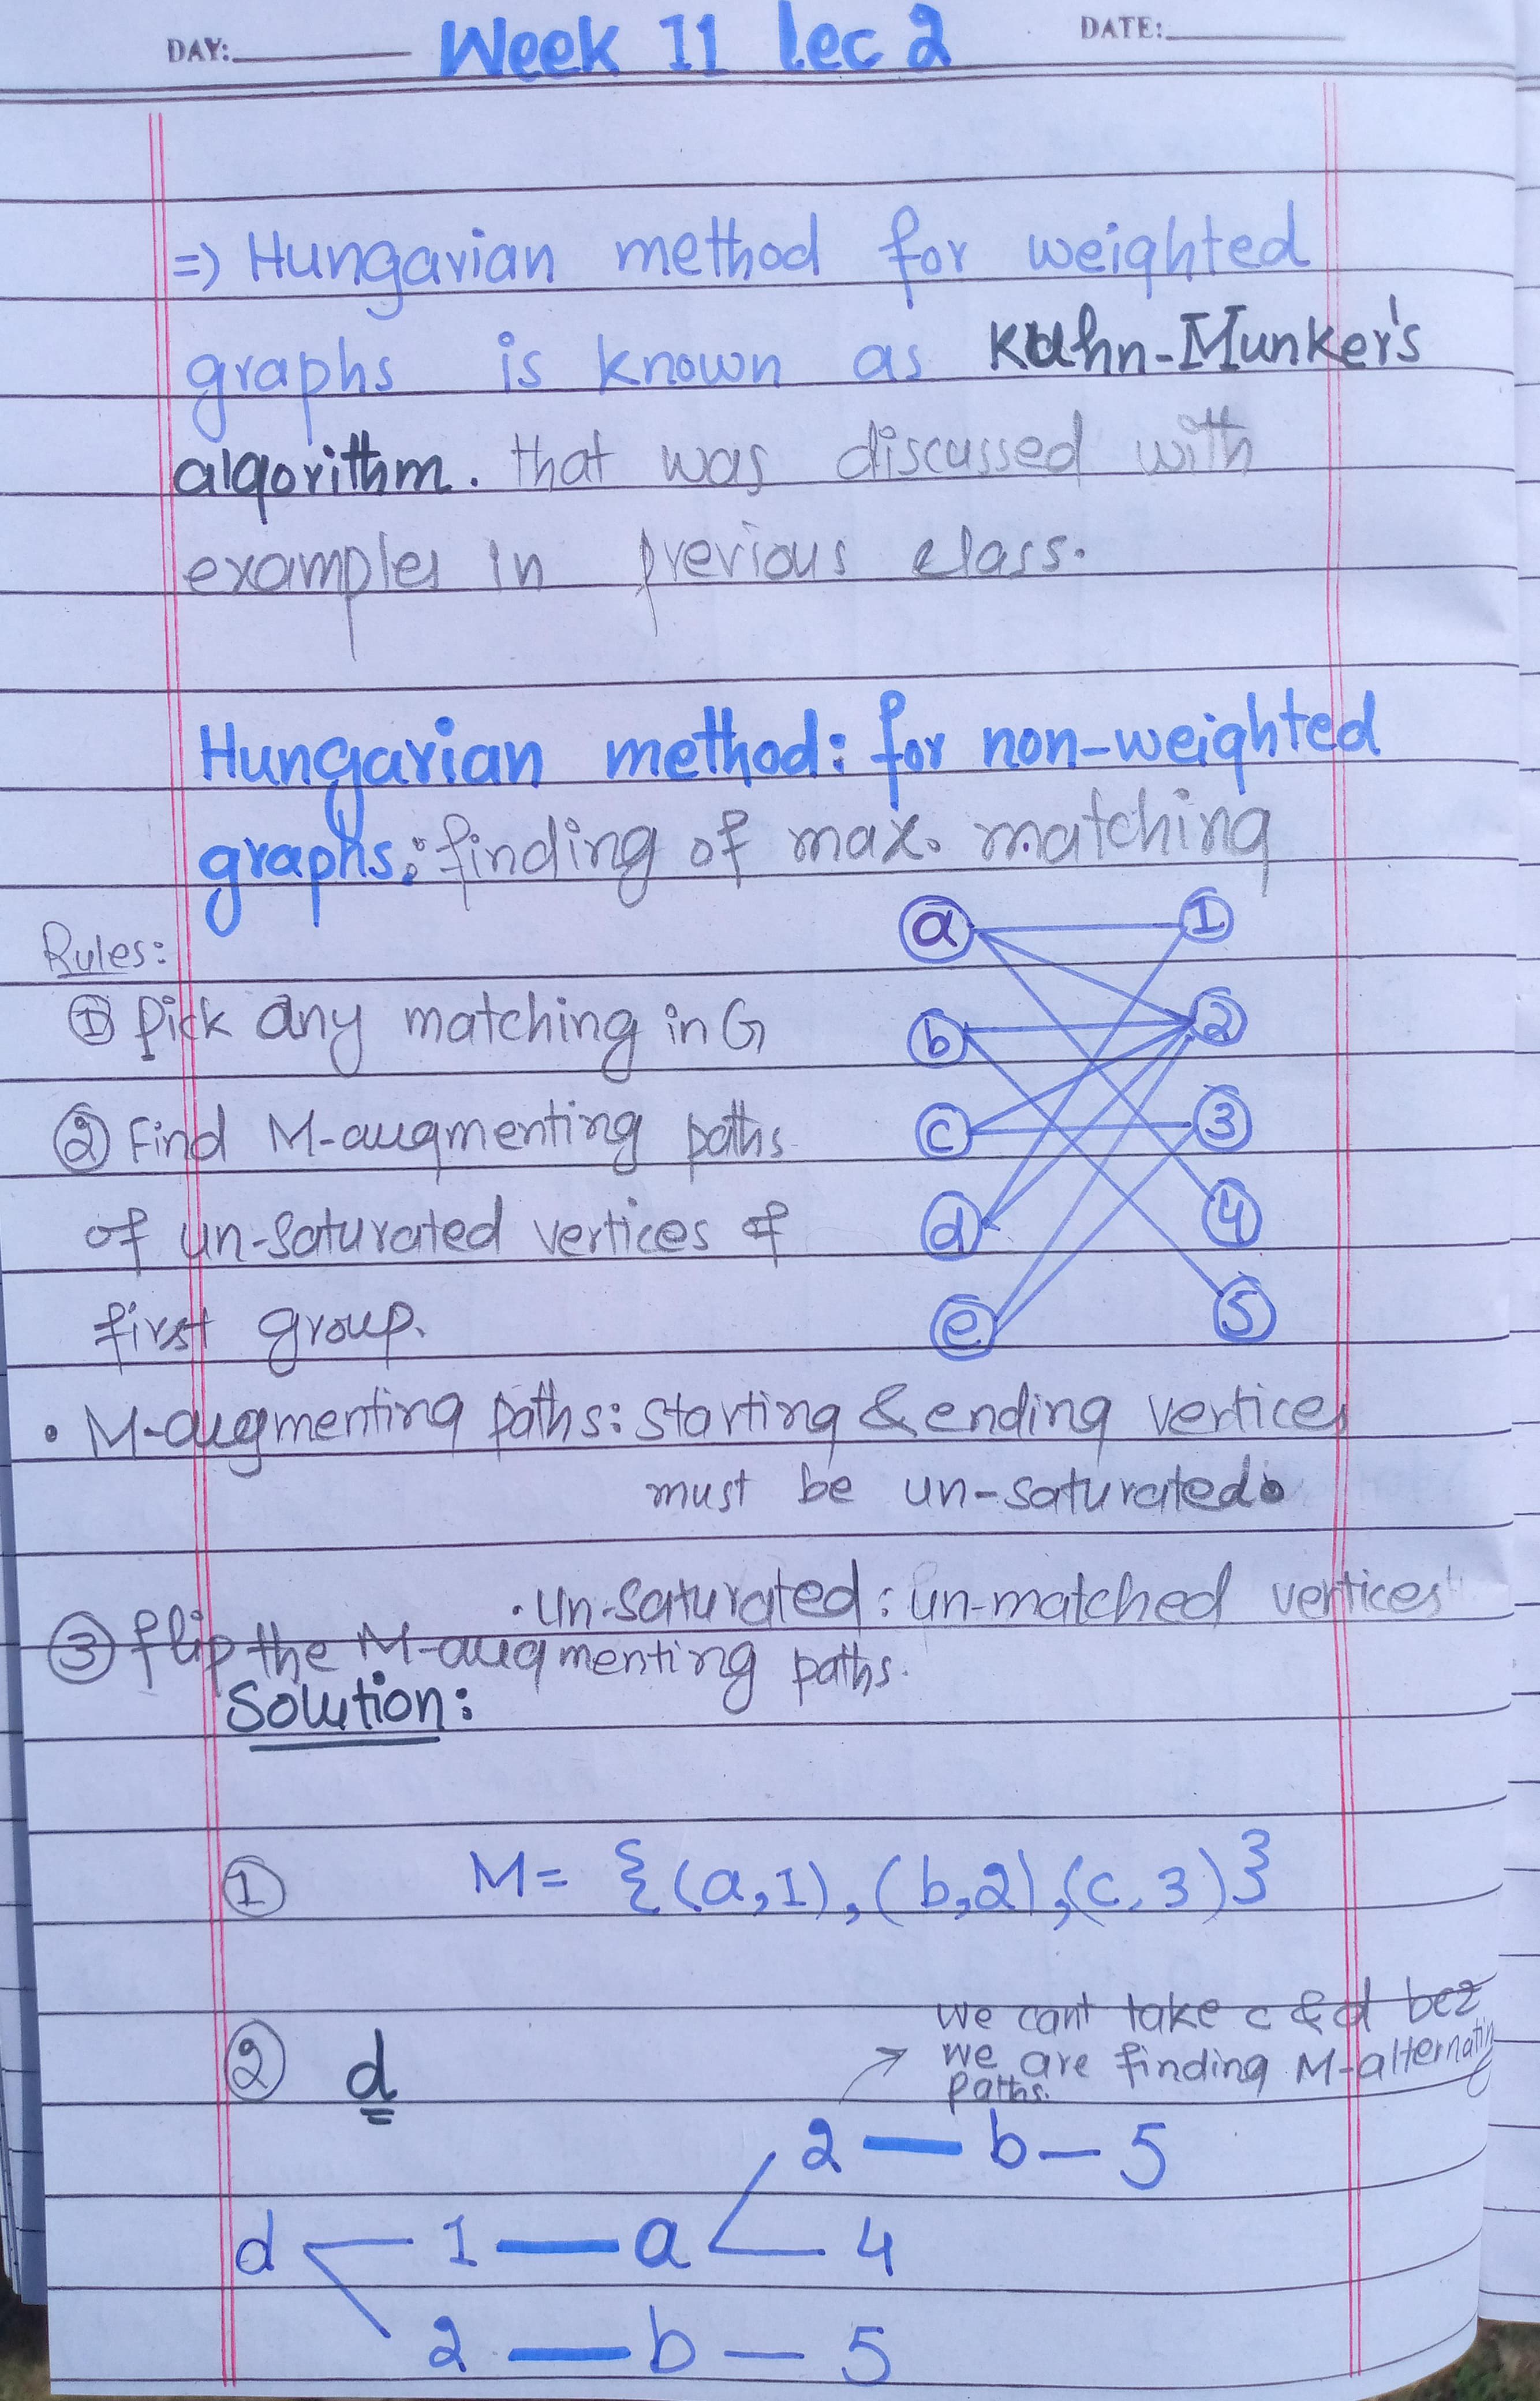 DAY: Week 11 lec 2 DATE:
=) Hungarian method for weighted
graphs is known as Kuhn-Munker's
algorithm. that was discussed with
examples in previous class.
Hungarian method: for non-weighted
graphs: finding of max. matching
Rules:
① Pick any matching in G
② Find M-augmenting paths
of un-saturated vertices of
first group.
a 1
b 2
c 3
d 4
e 5
• M-augmenting paths: starting & ending vertices
must be un-saturated.
• Un-saturated: un-matched vertices
③ flip the M-augmenting paths.
Solution:
① M= {(a,1), (b,2), (c,3)}
we cant take c & d bcz
② d → we are finding M-alternatin
paths.
2 — b — 5
d 1 — a 4
2 — b — 5